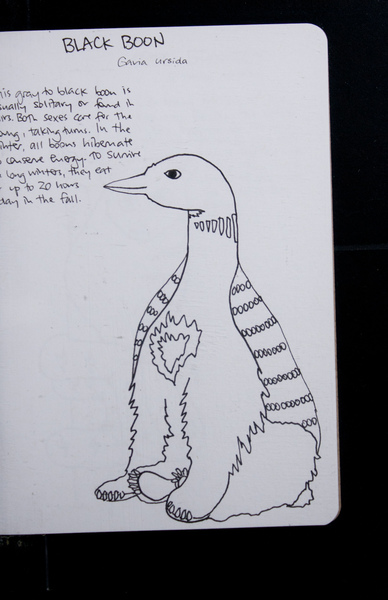 BLACK BOON
Gavia ursida
his gray to black boon is
sually solitary or found in
irs. Both sexes care for the
oung, taking turns. In the
inter, all boons hibernate
o conserve energy. To survive
long winters, they eat
up to 20 hours
day in the fall.